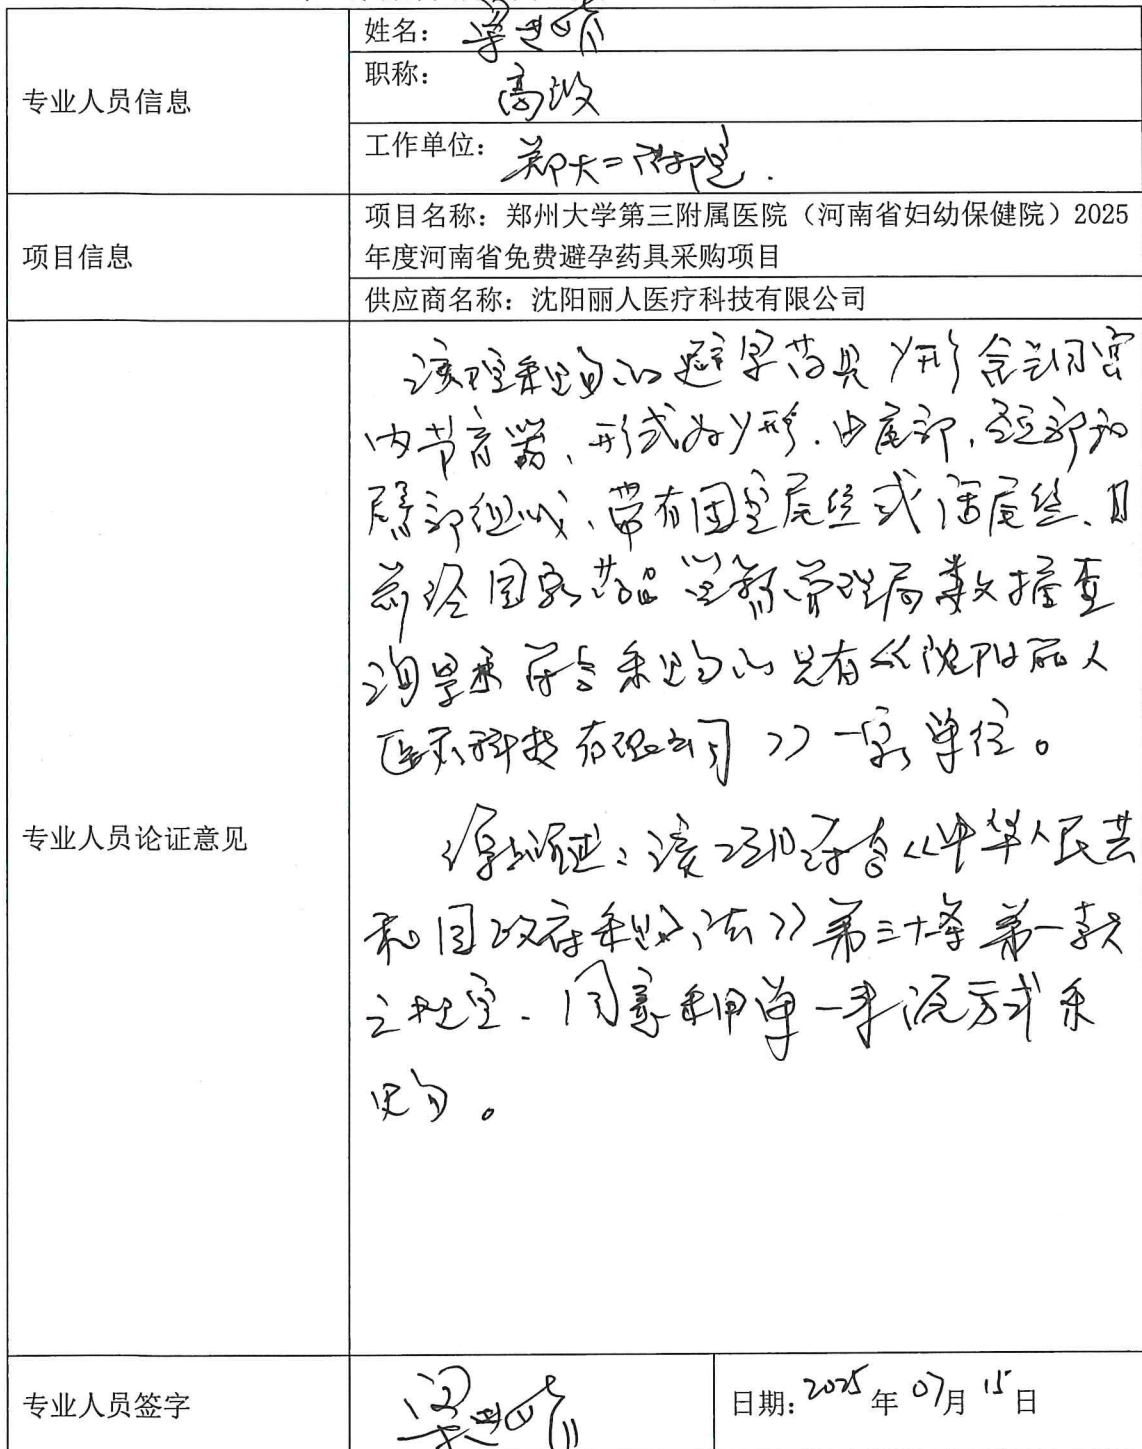 专业人员信息
姓名：梁
职称：高级
工作单位：郑大二附院.
项目信息
项目名称：郑州大学第三附属医院（河南省妇幼保健院）2025
年度河南省免费避孕药具采购项目
供应商名称：沈阳丽人医疗科技有限公司
专业人员论证意见
该采购的避孕药具Y形含铜宫
内节育器、形式为Y形.由尾部,部和
臂部组成、带有固定尾丝或活尾丝、目
前经国家药品监督管理局数据查
询显示符合采购的只有《沈阳丽人
医疗科技有限公司》一家单位。
论证：该项目符合《中华人民共
和国政府采购法》第三十一条第一款
之规定.同意采用单一来源方式采
购。
专业人员签字
梁
日期：2025年07月15日